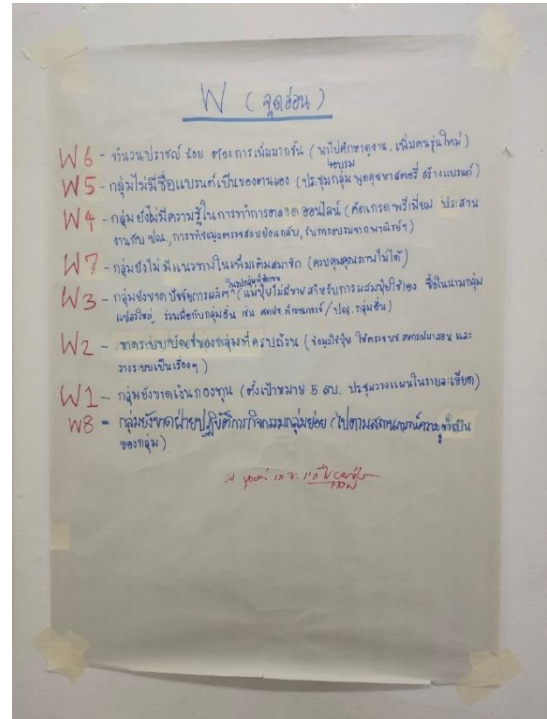 W (จุดอ่อน)
W6 - จำนวนปราชญ์ น้อย ต้องการเพิ่มมากขึ้น (พาไปศึกษาดูงาน, เพิ่มคนรุ่นใหม่)
+อบรม
W5 - กลุ่มไม่มีชื่อแบรนด์เป็นของตนเอง (ประชุมกลุ่ม พูดคุยหาสตอรี่ สร้างแบรนด์)
W4 - กลุ่มยังไม่มีความรู้ในการทำการตลาดออนไลน์ (คัดเกรดพรีเมี่ยม ประสาน
งานกับ
W7 - กลุ่มยังไม่มีแนวทางในเพิ่มเติมสมาชิก (ควบคุมคุณภาพไม่ได้)
W3 - กลุ่มยังขาดปัจจัยการผลิต (แม่ปุ๋ยไม่มีขาย สำหรับการผสมปุ๋ยใช้เอง ซื้อในนามกลุ่ม
แปลงใหญ่ ร่วมมือกับกลุ่มอื่น เช่น กลุ่มอื่น)
W2 - ขาดระบบบัญชีของกลุ่มที่ครบถ้วน และ
วางระบบเป็นเรื่องๆ)
W1 - กลุ่มยังขาดเงินกองทุน (ตั้งเป้าหมาย 5 ลบ. ประชุมวางแผนในรายละเอียด)
W8 - กลุ่มยังขาดฝ่ายปฏิบัติการกิจกรรมกลุ่มย่อย (ไปตามสถานการณ์ความจำเป็น
ของกลุ่ม)